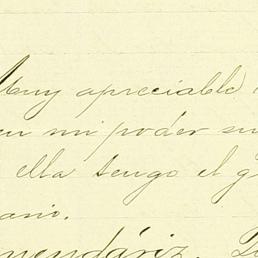 Muy apreciable
en mi poder su
ella tengo el g
ario.
mendáriz.